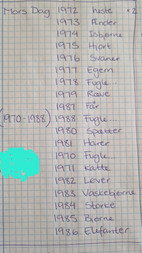 Mors Dag 1972 heste +2
1973 Ænder
1974 Isbjørne
1975 Hjort
1976 Svaner
1977 Egern
1978 Fugle
1979 Ræve
1987 Får
(1970-1988) 1988 Fugle
1980 Spætter
1981 Harer
1970 Fugle
1971 Katte
1982 Løver
1983 Vaskebjørne
1984 Storke
1985 Bjørne
1986 Elefanter